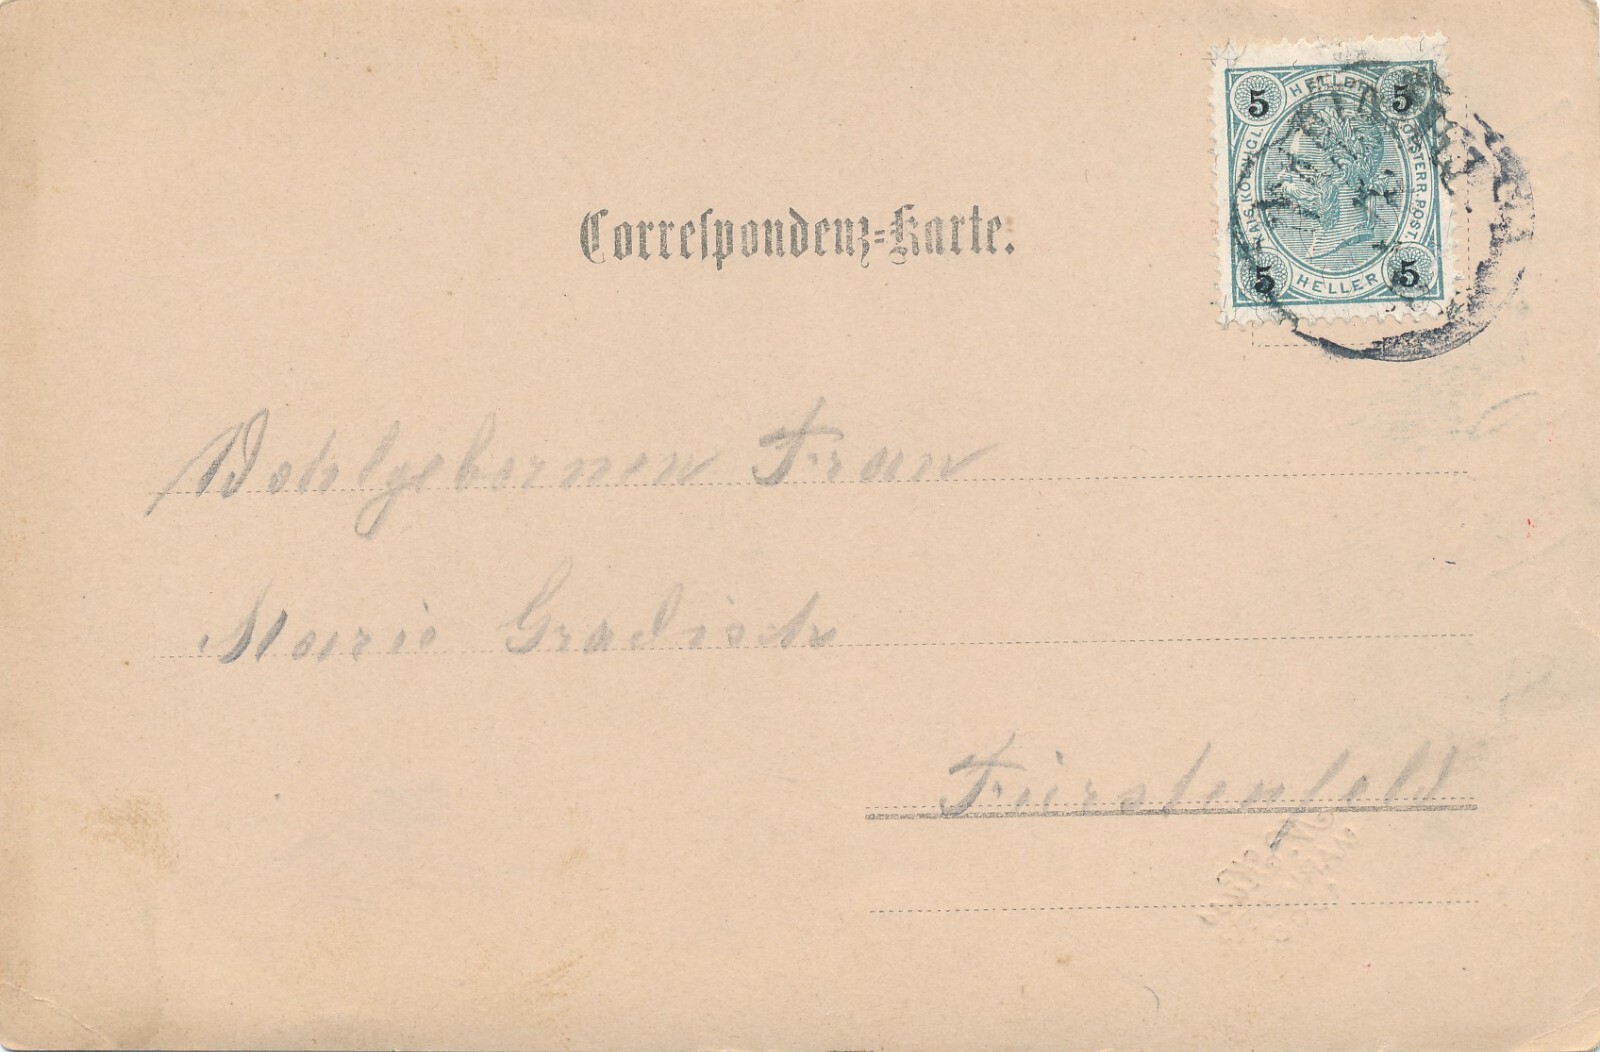 5 HELLER 5
KAIS. KOENIGL. OESTERR. POST.
5 HELLER 5
Correspondenz-Karte.
Wohlgebornen Frau
Marie Gradisch
Fürstenfeld